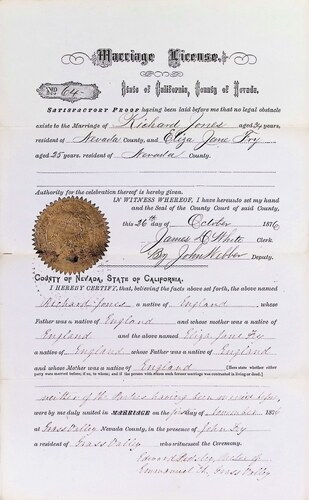 Marriage License.
No. 64
State of California, County of Nevada.
SATISFACTORY PROOF having been laid before me that no legal obstacle
exists to the Marriage of Richard Jones aged years,
resident of Nevada County, and Eliza Jane Fry
aged 25 years, resident of Nevada County.
Authority for the celebration thereof is hereby given.
IN WITNESS WHEREOF, I have hereunto set my hand
and the Seal of the County Court of said County,
this 26th day of October 1876
James D White Clerk.
By John Webber Deputy.
COUNTY OF NEVADA, STATE OF CALIFORNIA.
I HEREBY CERTIFY, that, believing the facts above set forth, the above named
Richard Jones a native of England whose
Father was a native of England and whose mother was a native
of England and the above named Eliza Jane Fry
a native of England whose Father was a native of England
and whose Mother was a Native of England [Here state whether either
party were married before; if so, to whom; and if the person with whom such former marriage was contracted is living or dead.]
neither of the Parties having been married before,
were by me duly united in MARRIAGE on the first day of November 1876
at Grass Valley Nevada County, in the presence of John Fry
a resident of Grass Valley who witnessed the Ceremony.
Edward
Emmanuel Ch, Grass Valley